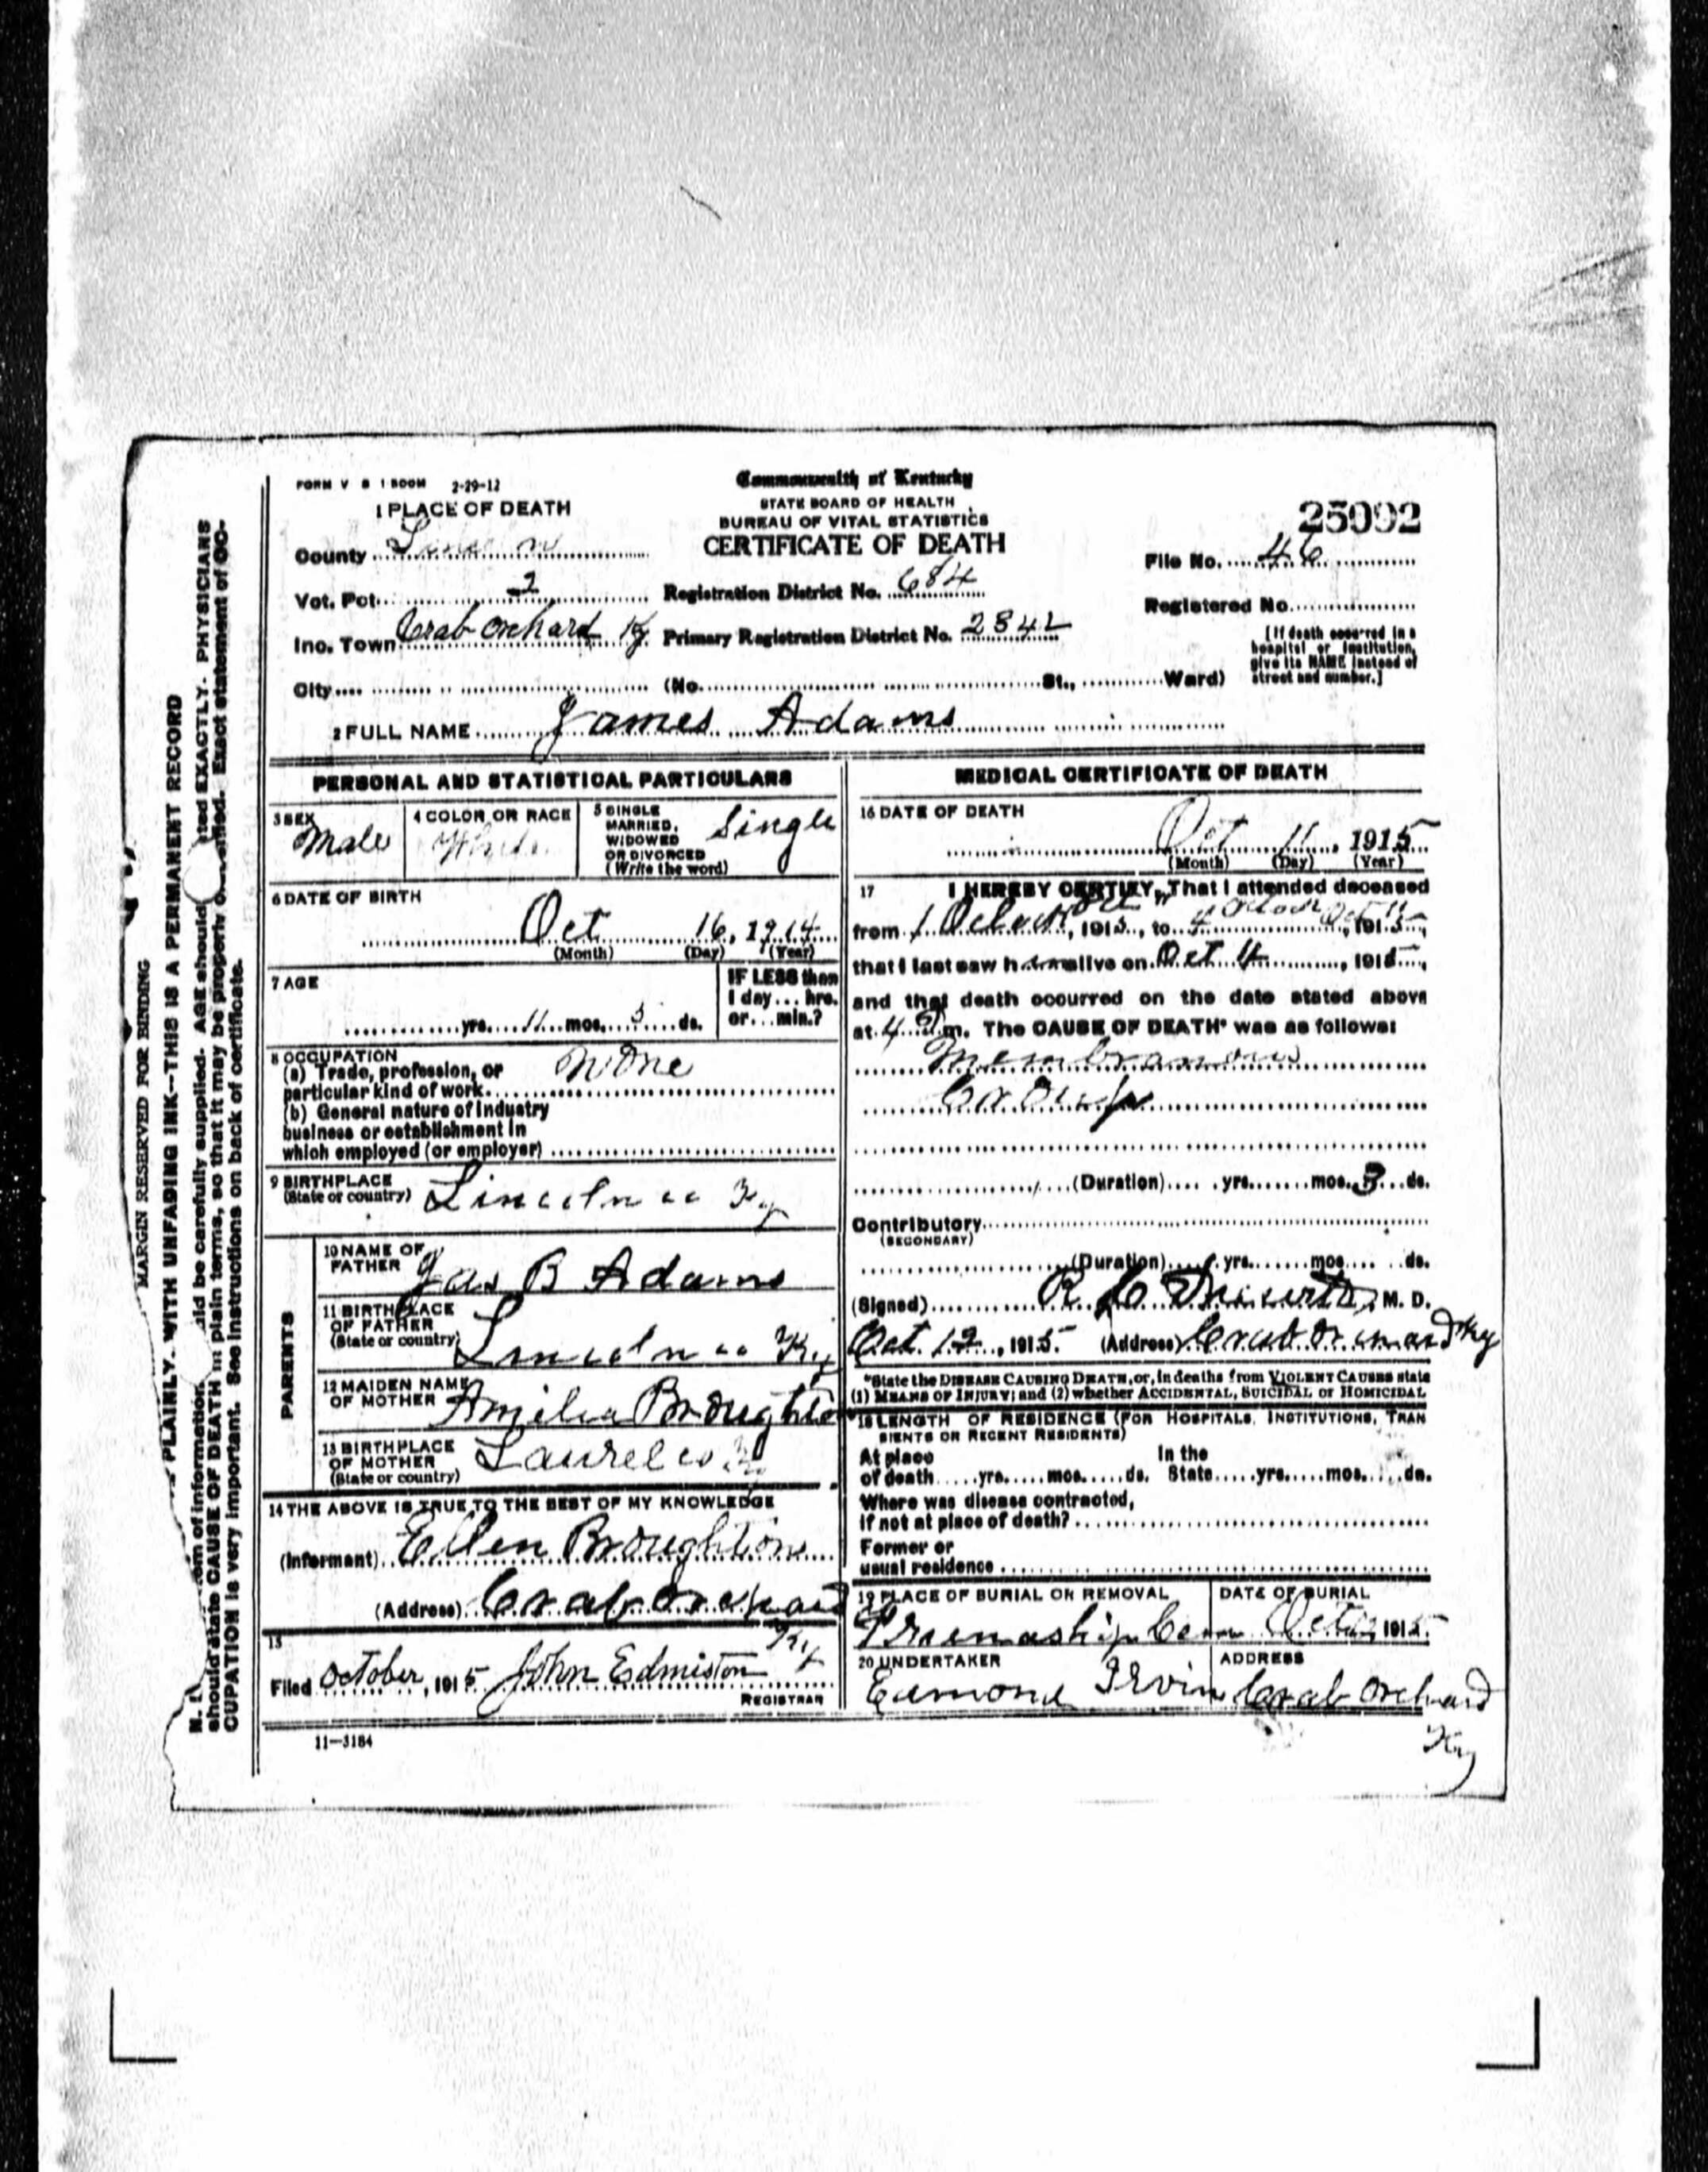 FORM V S 1 500M 2-29-12
Commonwealth of Kentucky
STATE BOARD OF HEALTH
BUREAU OF VITAL STATISTICS
CERTIFICATE OF DEATH
25092
1 PLACE OF DEATH
County Lincoln
File No. 46
Vot. Pct. 2 Registration District No. 684
Registered No.
Inc. Town Crab Orchard Ky. Primary Registration District No. 2842
[If death occurred in a
hospital or institution,
give its NAME instead of
street and number.]
City (No. St., Ward)
2 FULL NAME James Adams
PERSONAL AND STATISTICAL PARTICULARS
3 SEX
Male
4 COLOR OR RACE
White
5 SINGLE
MARRIED,
WIDOWED
OR DIVORCED
(Write the word)
Single
6 DATE OF BIRTH
Oct 16, 1914
(Month) (Day) (Year)
7 AGE
yrs. 11 mos. 5 ds.
IF LESS than
1 day ... hrs.
or ... min.?
8 OCCUPATION
(a) Trade, profession, or
particular kind of work None
(b) General nature of industry
business or establishment in
which employed (or employer)
9 BIRTHPLACE
(State or country) Lincoln co Ky
PARENTS
10 NAME OF
FATHER Jas B Adams
11 BIRTHPLACE
OF FATHER
(State or country) Lincoln co Ky
12 MAIDEN NAME
OF MOTHER Amelia Broughto
13 BIRTHPLACE
OF MOTHER
(State or country) Laurel co. Ky
14 THE ABOVE IS TRUE TO THE BEST OF MY KNOWLEDGE
(Informant) Ellen Broughton
(Address) Crab Orchard
Ky
15
Filed October, 1915 John Edmiston
REGISTRAR
11-3184
MEDICAL CERTIFICATE OF DEATH
16 DATE OF DEATH
Oct 11, 1915
(Month) (Day) (Year)
17 I HEREBY CERTIFY, That I attended deceased
from 1 Oclock Oct 11, 1915, to 4 Oclock Oct 11, 1915,
that I last saw him alive on Oct 11, 1915,
and that death occurred on the date stated above
at 4 m. The CAUSE OF DEATH* was as follows:
Membranous
Croup
(Duration) yrs. mos. 3 ds.
Contributory
(SECONDARY)
(Duration) yrs. mos. ds.
(Signed) R C M. D.
Oct. 12, 1915. (Address) Crab Orchard Ky
*State the DISEASE CAUSING DEATH, or, in deaths from VIOLENT CAUSES state
(1) MEANS OF INJURY; and (2) whether ACCIDENTAL, SUICIDAL or HOMICIDAL
18 LENGTH OF RESIDENCE (FOR HOSPITALS, INSTITUTIONS, TRAN
SIENTS OR RECENT RESIDENTS)
At place In the
of death yrs. mos. ds. State yrs. mos. ds.
Where was disease contracted,
If not at place of death?
Former or
usual residence
19 PLACE OF BURIAL OR REMOVAL
Cem
DATE OF BURIAL
Oct 1915
20 UNDERTAKER
Edmond Irvin
ADDRESS
Crab Orchard
Ky
MARGIN RESERVED FOR BINDING
PLAINLY. WITH UNFADING INK--THIS IS A PERMANENT RECORD
em of information uld be carefully supplied. AGE should ted EXACTLY. PHYSICIANS
should state CAUSE OF DEATH in plain terms, so that it may be properly classified. Exact statement of OC-
CUPATION is very important. See instructions on back of certificate.